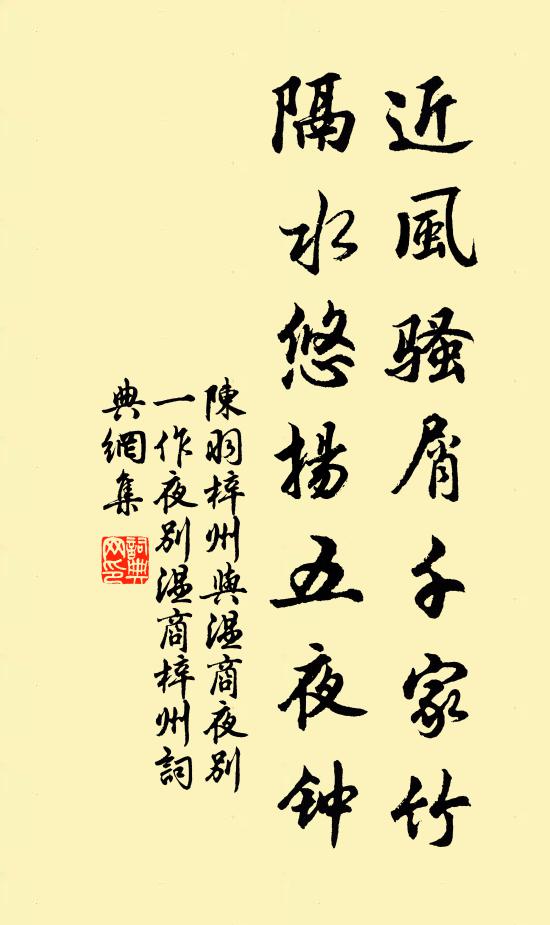 近風騷屑千家竹
隔水悠揚五夜钟
陳羽梓州與温商夜別
一作夜別温商梓州詞
典網集
詞典
网印